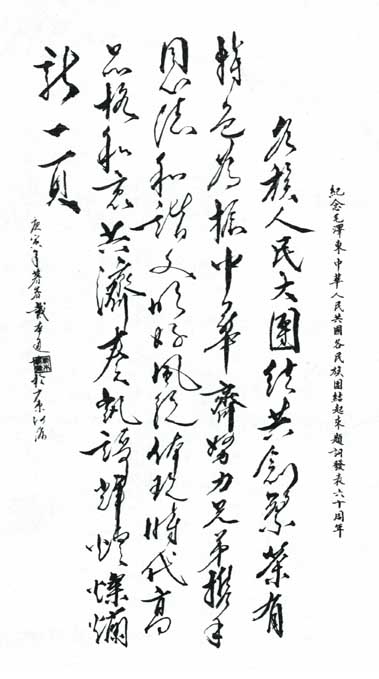 紀念毛澤東中華人民共國各民族團結起來題詞發表六十周年
各族人民大團结共創繁荣有
特色為振中華齊努力兄弟携手
同心德和諧文明好風范体现時代高
品格和衷共濟奏凯謌輝煌燦爛
新一頁
庚寅年